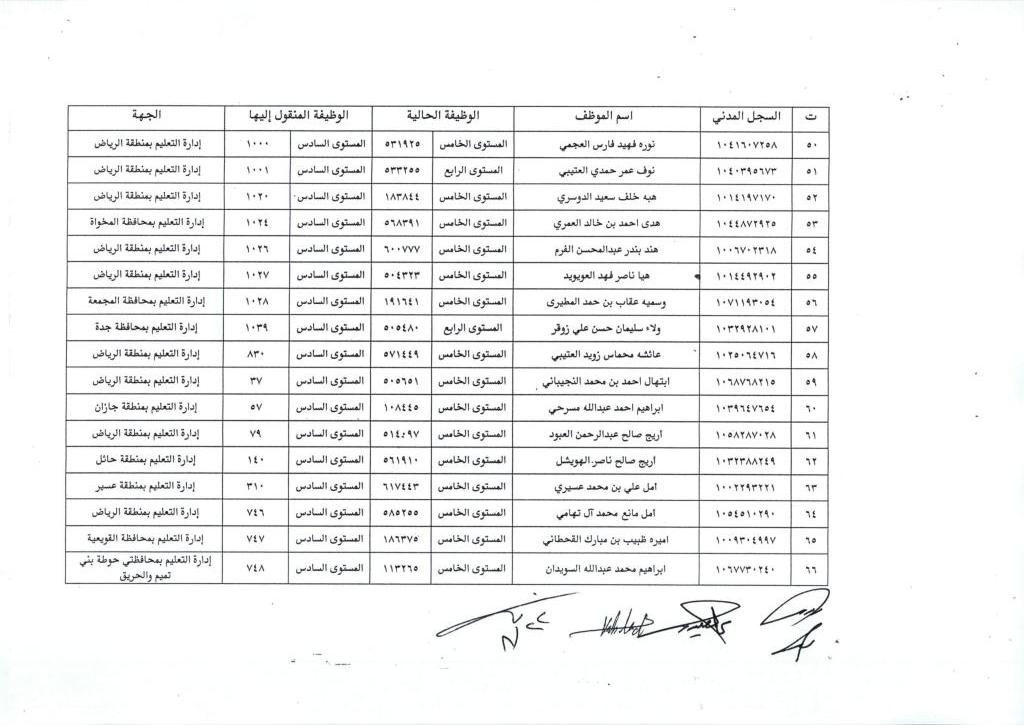 ت السجل المدني اسم الموظف الوظيفة الحالية الوظيفة المنقول إليها الجهة
٥٠ ١٠٤١٦٠٧٢٥٨ نوره فهيد فارس العجمي المستوى الخامس ٥٣١٩٢٥ المستوى السادس ١٠٠٠ إدارة التعليم بمنطقة الرياض
٥١ ١٠٤٠٣٩٥٦٧٣ نوف عمر حمدي العتيبي المستوى الرابع ٥٣٣٢٥٥ المستوى السادس ١٠٠١ إدارة التعليم بمنطقة الرياض
٥٢ ١٠١٤١٩٧١٧٠ هبه خلف سعيد الدوسري المستوى الخامس ١٨٣٨٤٤ المستوى السادس ١٠٢٠ إدارة التعليم بمنطقة الرياض
٥٣ ١٠٤٤٨٧٢٩٢٥ هدى احمد بن خالد العمري المستوى الخامس ٥٦٨٣٩١ المستوى السادس ١٠٢٤ إدارة التعليم بمحافظة المخواة
٥٤ ١٠٠٦٧٠٢٣١٨ هند بندر عبدالمحسن الفرم المستوى الخامس ٦٠٠٧٧٧ المستوى السادس ١٠٢٦ إدارة التعليم بمنطقة الرياض
٥٥ ١٠١٤٤٩٢٩٠٢ هيا ناصر فهد العويويد المستوى الخامس ٥٠٤٣٢٣ المستوى السادس ١٠٢٧ إدارة التعليم بمنطقة الرياض
٥٦ ١٠٧١١٩٣٠٥٤ وسميه عقاب بن حمد المطيرى المستوى الخامس ١٩١٦٤١ المستوى السادس ١٠٢٨ إدارة التعليم بمحافظة المجمعة
٥٧ ١٠٣٢٩٢٨١٠١ ولاء سليمان حسن علي زوقر المستوى الرابع ٥٠٥٤٨٠ المستوى السادس ١٠٣٩ إدارة التعليم بمحافظة جدة
٥٨ ١٠٢٥٠٦٤٧١٦ عائشه محماس زويد العتيبي المستوى الخامس ٥٧١٤٤٩ المستوى السادس ٨٣٠ إدارة التعليم بمنطقة الرياض
٥٩ ١٠٦٨٧٦٨٢١٥ ابتهال احمد بن محمد النجيباني المستوى الخامس ٥٠٥٦٥١ المستوى السادس ٣٧ إدارة التعليم بمنطقة الرياض
٦٠ ١٠٣٩٦٤٧٦٥٤ ابراهيم احمد عبدالله مسرحي المستوى الخامس ١٠٨٤٤٥ المستوى السادس ٥٧ إدارة التعليم بمنطقة جازان
٦١ ١٠٥٨٢٨٧٠٢٨ أريج صالح عبدالرحمن العبود المستوى الخامس ٥١٤٤٩٧ المستوى السادس ٧٩ إدارة التعليم بمنطقة الرياض
٦٢ ١٠٣٢٣٨٨٢٤٩ اريج صالح ناصر الهويشل المستوى الخامس ٥٦١٩١٠ المستوى السادس ١٤٠ إدارة التعليم بمنطقة حائل
٦٣ ١٠٠٢٢٩٣٢٢١ امل علي بن محمد عسيري المستوى الخامس ٦١٧٤٤٣ المستوى السادس ٣١٠ إدارة التعليم بمنطقة عسير
٦٤ ١٠٥٤٥١٠٢٩٠ امل مانع محمد آل تهامي المستوى الخامس ٥٨٥٢٥٥ المستوى السادس ٧٤٦ إدارة التعليم بمنطقة الرياض
٦٥ ١٠٠٩٣٠٤٩٩٧ اميره طبيب بن مبارك القحطاني المستوى الخامس ١٨٦٣٧٥ المستوى السادس ٧٤٧ إدارة التعليم بمحافظة القويعية
٦٦ ١٠٦٧٧٣٠٢٤٠ ابراهيم محمد عبدالله السويدان المستوى الخامس ١١٣٢٦٥ المستوى السادس ٧٤٨ إدارة التعليم بمحافظتي حوطة بني
تميم والحريق